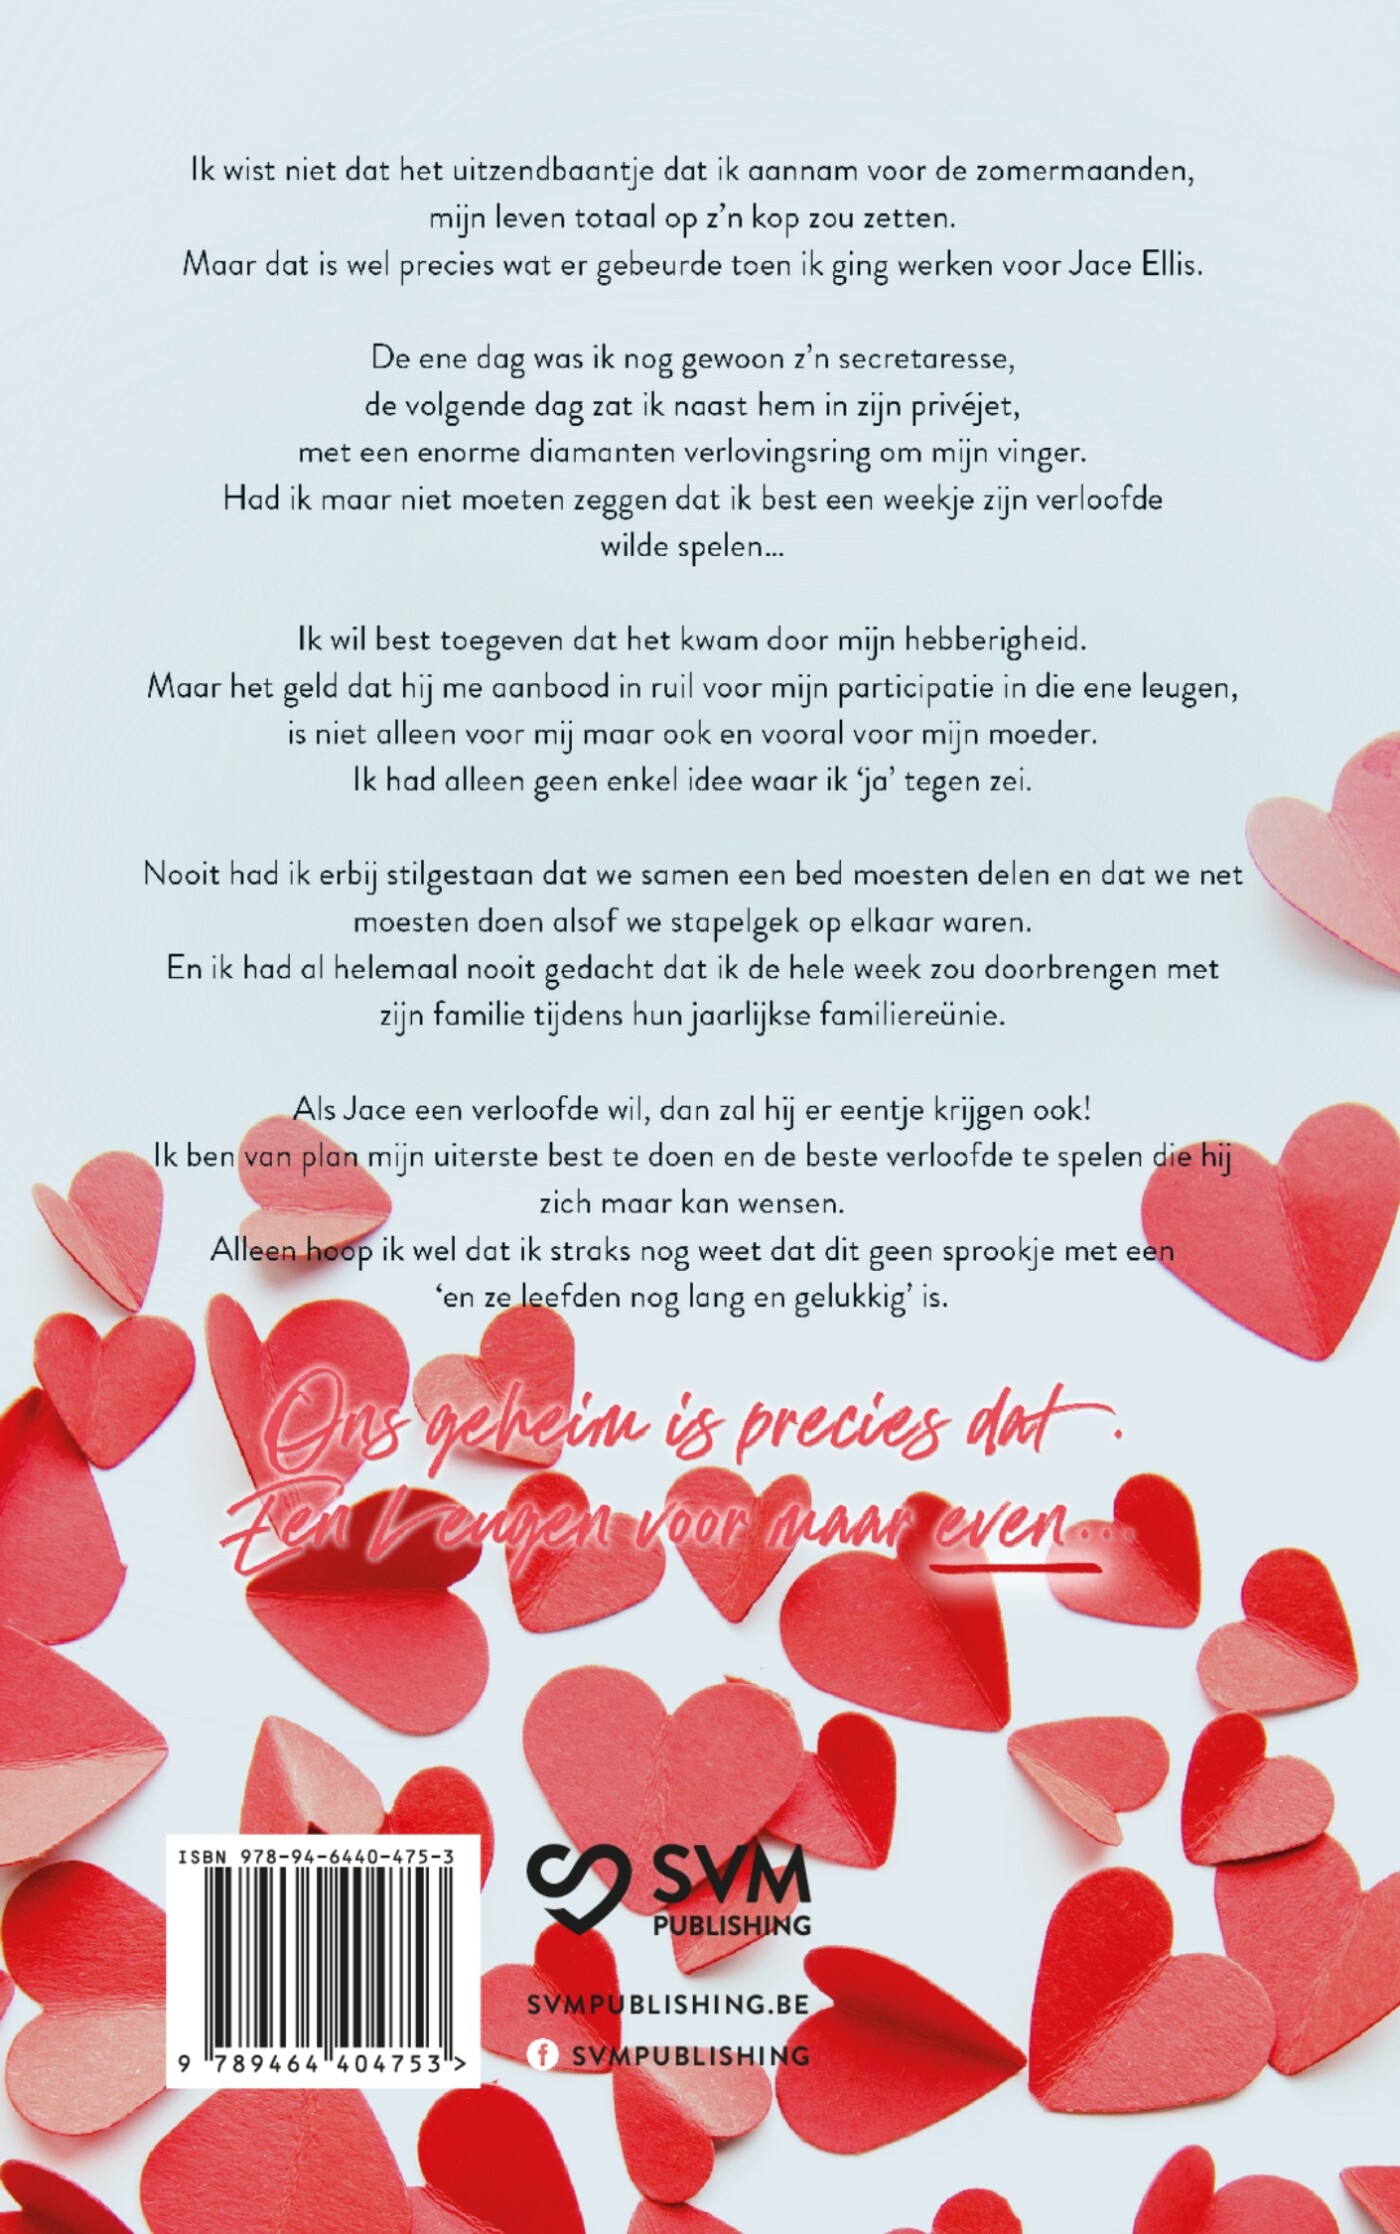 Ik wist niet dat het uitzendbaantje dat ik aannam voor de zomermaanden,
mijn leven totaal op z’n kop zou zetten.
Maar dat is wel precies wat er gebeurde toen ik ging werken voor Jace Ellis.
De ene dag was ik nog gewoon z’n secretaresse,
de volgende dag zat ik naast hem in zijn privéjet,
met een enorme diamanten verlovingsring om mijn vinger.
Had ik maar niet moeten zeggen dat ik best een weekje zijn verloofde
wilde spelen...
Ik wil best toegeven dat het kwam door mijn hebberigheid.
Maar het geld dat hij me aanbood in ruil voor mijn participatie in die ene leugen,
is niet alleen voor mij maar ook en vooral voor mijn moeder.
Ik had alleen geen enkel idee waar ik ‘ja’ tegen zei.
Nooit had ik erbij stilgestaan dat we samen een bed moesten delen en dat we net
moesten doen alsof we stapelgek op elkaar waren.
En ik had al helemaal nooit gedacht dat ik de hele week zou doorbrengen met
zijn familie tijdens hun jaarlijkse familiereünie.
Als Jace een verloofde wil, dan zal hij er eentje krijgen ook!
Ik ben van plan mijn uiterste best te doen en de beste verloofde te spelen die hij
zich maar kan wensen.
Alleen hoop ik wel dat ik straks nog weet dat dit geen sprookje met een
‘en ze leefden nog lang en gelukkig’ is.
Ons geheim is precies dat.
Een Leugen voor maar even...
ISBN 978-94-6440-475-3
9 789464 404753>
SVM
PUBLISHING
SVMPUBLISHING.BE
f SVMPUBLISHING